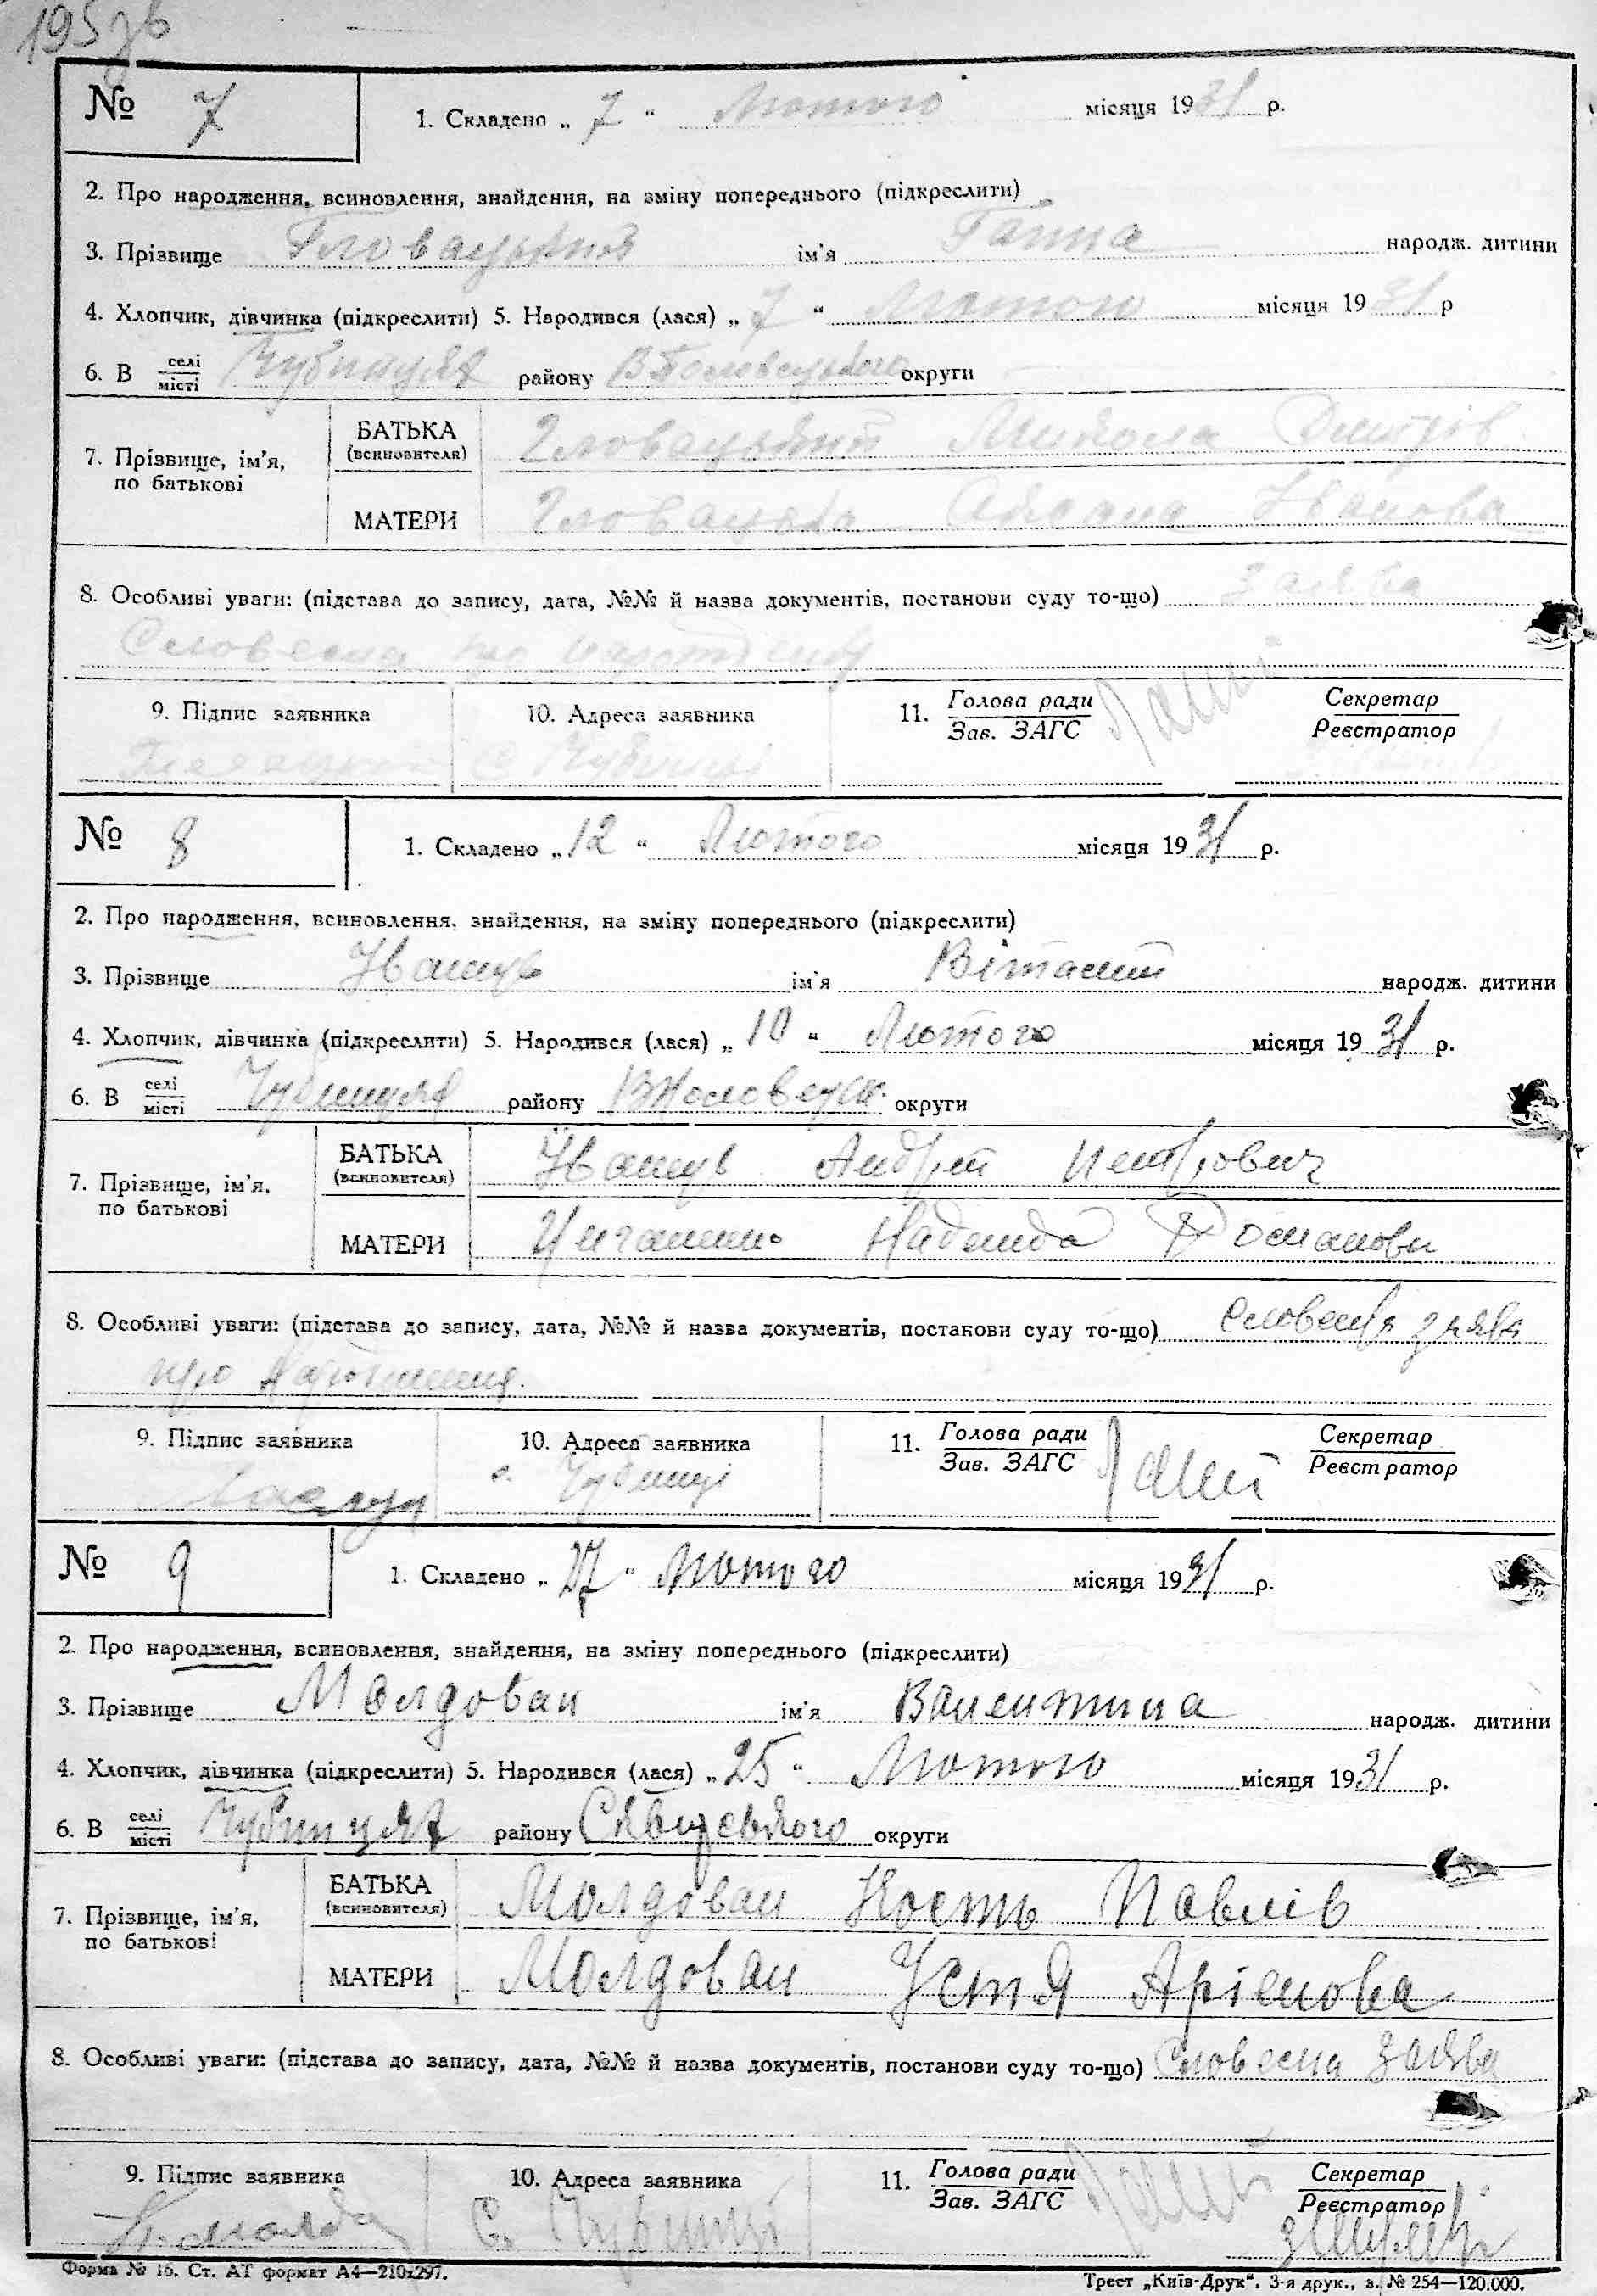 195зв
№ 7 1. Складено „ 7 “ Лютого місяця 1931 р.
2. Про народження, всиновлення, знайдення, на зміну попереднього (підкреслити)
3. Прізвище Гловацький ім'я Ганна народж. дитини
4. Хлопчик, дівчинка (підкреслити) 5. Народився (лася) „ 7 “ Лютого місяця 1931 р
6. В селі / місті Чубинцях району округи
7. Прізвище, ім'я, по батькові
БАТЬКА (всиновителя) Гловацький Микола Дмитрів
МАТЕРИ Іванова
8. Особливі уваги: (підстава до запису, дата, №№ й назва документів, постанови суду то-що) Заява
Словесна про
9. Підпис заявника 10. Адреса заявника 11. Голова ради / Зав. ЗАГС Секретар / Реєстратор
с Чубинці
№ 8 1. Складено „ 12 “ Лютого місяця 1931 р.
2. Про народження, всиновлення, знайдення, на зміну попереднього (підкреслити)
3. Прізвище Іващук ім'я Віталий народж. дитини
4. Хлопчик, дівчинка (підкреслити) 5. Народився (лася) „ 10 “ Лютого місяця 1931 р.
6. В селі / місті Чубинцях району округи
7. Прізвище, ім'я, по батькові
БАТЬКА (всиновителя) Іващук Андрій Петрович
МАТЕРИ Надежда Романовн
8. Особливі уваги: (підстава до запису, дата, №№ й назва документів, постанови суду то-що) Словесна заява
про народження.
9. Підпис заявника 10. Адреса заявника 11. Голова ради / Зав. ЗАГС Секретар / Реєстратор
с. Чубинці
№ 9 1. Складено „ 27 “ Лютого місяця 1931 р.
2. Про народження, всиновлення, знайдення, на зміну попереднього (підкреслити)
3. Прізвище Молдован ім'я Валентина народж. дитини
4. Хлопчик, дівчинка (підкреслити) 5. Народився (лася) „ 25 “ Лютого місяця 1931 р.
6. В селі / місті Чубинцях району Сквирського округи
7. Прізвище, ім'я, по батькові
БАТЬКА (всиновителя) Молдован Кость Павлів
МАТЕРИ Молдован Устя
8. Особливі уваги: (підстава до запису, дата, №№ й назва документів, постанови суду то-що) Словесна заява
9. Підпис заявника 10. Адреса заявника 11. Голова ради / Зав. ЗАГС Секретар / Реєстратор
С. Чубинці
Форма № 16. Ст. АТ формат А4—210х297. Трест „Київ-Друк“. 3-я друк., з. № 254—120.000.